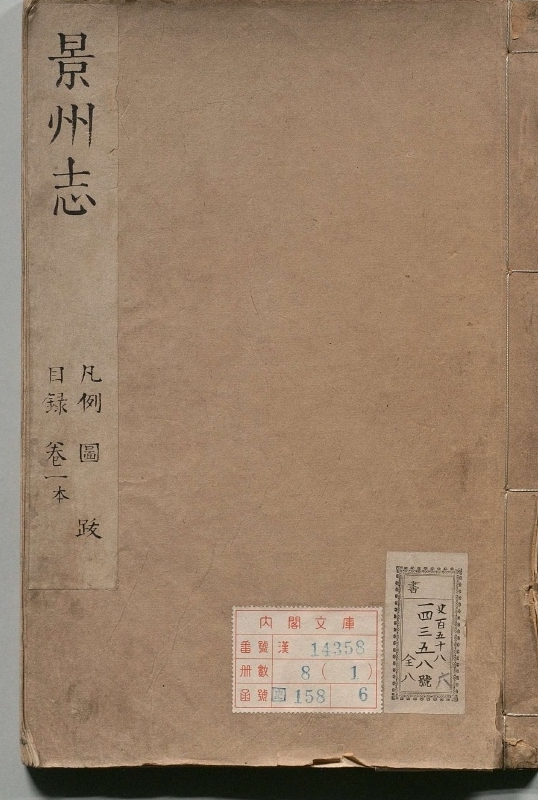 景州志
凡例 圖 跋
目録 卷一本
内閣文庫
番號 漢 14358
册數 8(1)
函號 圖 158 6
書
史百五十八
一四三五八號
全八
六